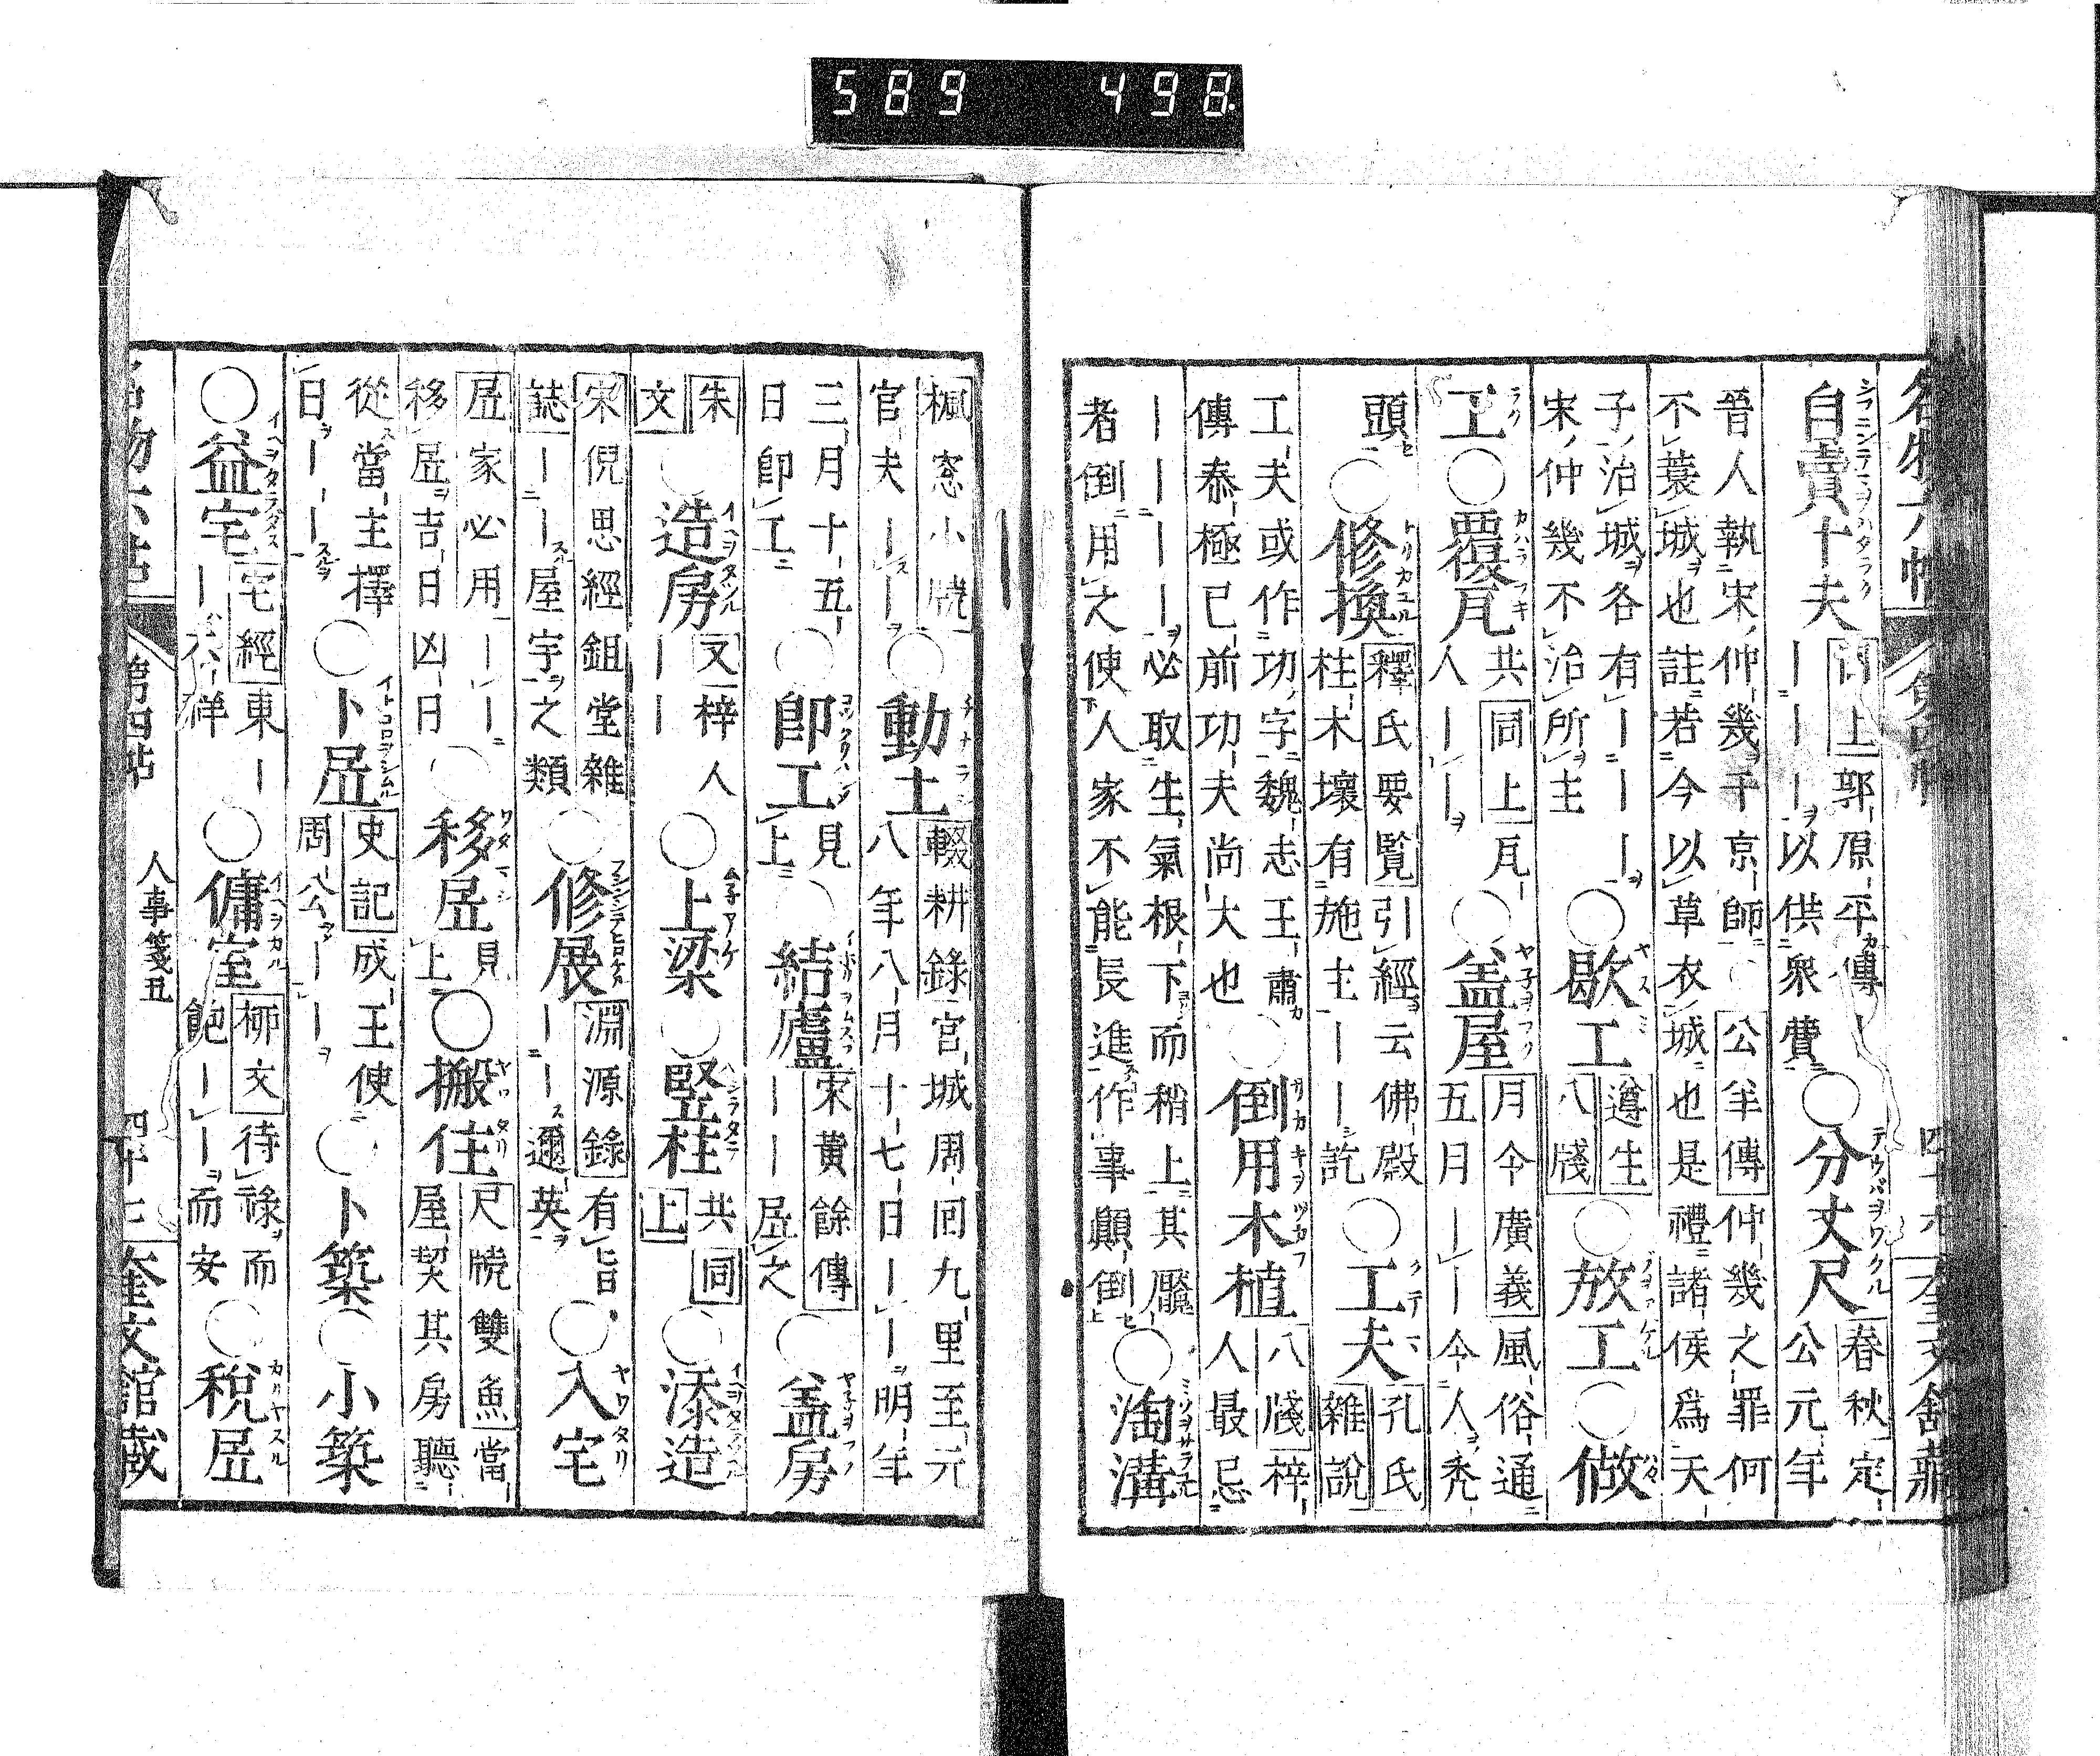 589 498
自賣十夫 同上 郭原平傳 ｜｜｜｜以供衆費 ○分丈尺 春秋 定公元年
晉人執宋仲幾于京師 ○ 公羊傳 仲幾之罪何
不蓑城也註若今以草衣城也是禮諸侯爲天
子治城各有｜｜｜宋仲幾不治所主 ○歇工 遵生八牋 ○放工 ○做
工 ○覆瓦 共同上 瓦人｜｜ ○盖屋 月令廣義 五月｜｜ 風俗通 今人秃
頭 ○修換 釋氏要覧 引經云佛殿柱木壞有施主｜｜訖 ○工夫 孔氏雜說
工夫或作功字魏志王肅傳泰極已前功夫尚大也 ○倒用木植 八牋 梓人最忌
｜｜｜｜必取生氣根下而稍上其魘
者倒用之使人家不能長進作事顛倒 ○淘溝
楓窓小牘 官夫｜｜ ○動土 輟耕錄 宮城周回九里至元八年八月十七日｜｜明年
三月十五日卽工 ○卽工 見上 ○結廬 宋黃餘傳 ｜｜居之 ○盖房
朱文 ○造房 又 梓人｜｜ ○上梁 ○竪柱 共同上 ○添造
宋倪思經鉏堂雜誌 ｜｜屋宇之類 ○修展 淵源錄 有旨｜｜邇英 ○入宅
居家必用 ｜｜移居吉日凶日 ○移居 見上 ○搬住 尺牘雙魚 當屋契其房聽
從當主擇日｜｜｜ ○卜居 史記 成王使周公｜｜ ○卜築 ○小築
○益宅 宅經 東｜｜不祥 ○傭室 柳文 待祿而飽｜｜而安 ○稅居
第四帖 人事箋五 四十七 奎文館蔵